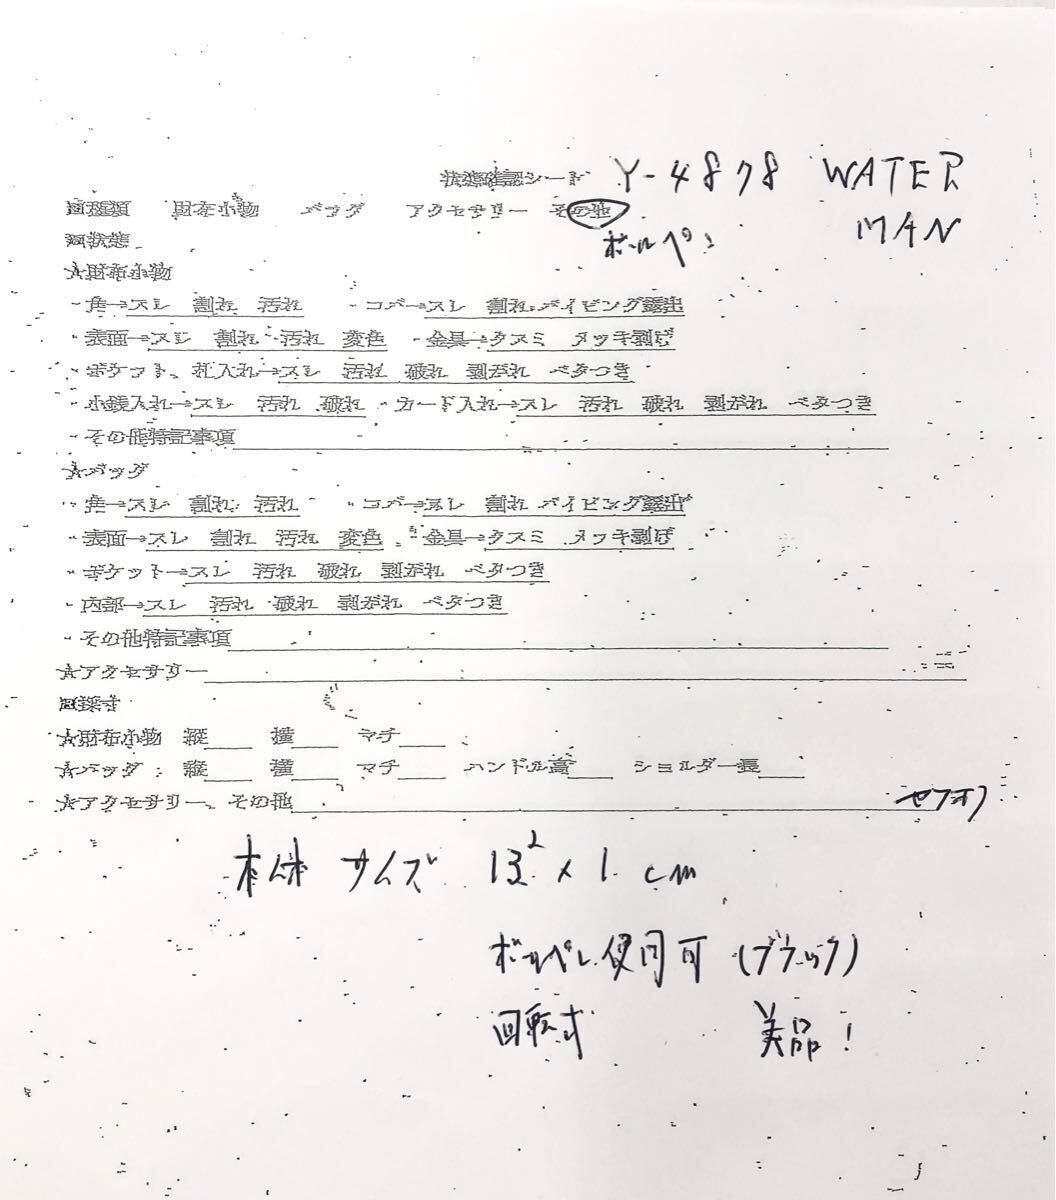 状態確認シート Y-4878 WATER
回種類 財布小物 バッグ アクセサリー その他
ボールペン MAN
回状態
☆財布小物
・角→スレ 割れ 汚れ ・コバ→スレ 割れ パイピング露出
・表面→スレ 割れ 汚れ 変色 ・金具→クスミ メッキ剥げ
・ポケット、札入れ→スレ 汚れ 破れ 剥がれ ベタつき
・小銭入れ→スレ 汚れ 破れ ・カード入れ→スレ 汚れ 破れ 剥がれ ベタつき
・その他特記事項
☆バッグ
・角→スレ 割れ 汚れ ・コバ→スレ 割れ パイピング露出
・表面→スレ 割れ 汚れ 変色 ・金具→クスミ メッキ剥げ
・ポケット→スレ 汚れ 破れ 剥がれ ベタつき
・内部→スレ 汚れ 破れ 剥がれ ベタつき
・その他特記事項
☆アクセサリー
回採寸
☆財布小物 縦 横 マチ
☆バッグ 縦 横 マチ ハンドル高 ショルダー長
☆アクセサリー、その他
本体サイズ 13² x 1 cm
ボールペン使用可 (ブラック)
回転式 美品!